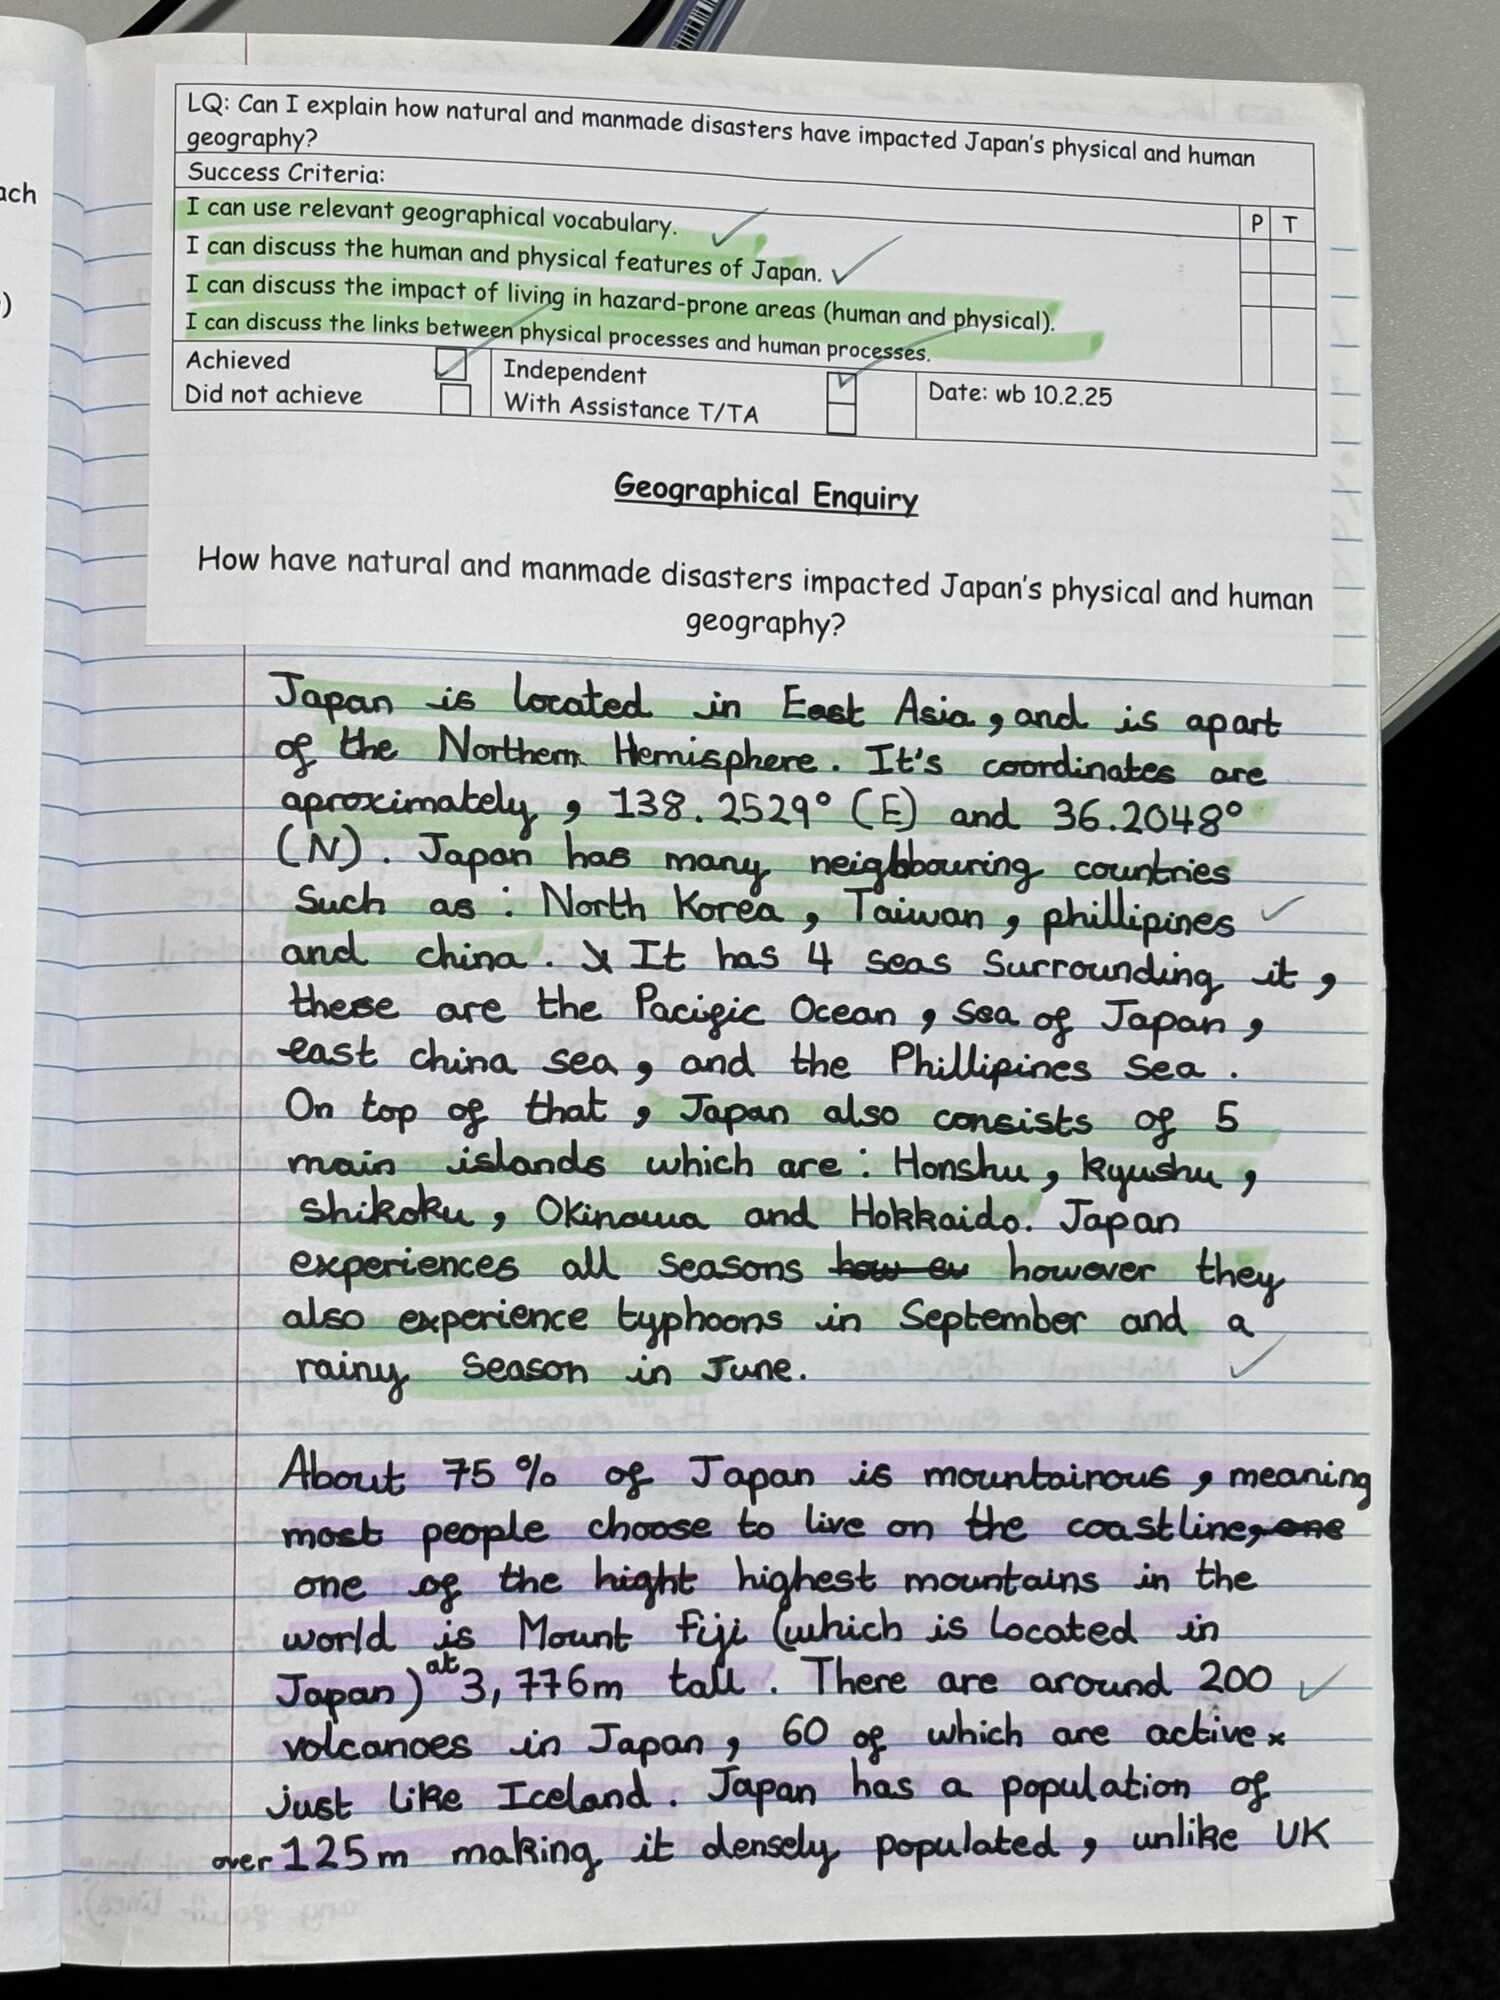 ach
)
LQ: Can I explain how natural and manmade disasters have impacted Japan's physical and human
geography?
Success Criteria:
P T
I can use relevant geographical vocabulary.
I can discuss the human and physical features of Japan.
I can discuss the impact of living in hazard-prone areas (human and physical).
I can discuss the links between physical processes and human processes.
Achieved
Did not achieve
Independent
With Assistance T/TA
Date: wb 10.2.25
Geographical Enquiry
How have natural and manmade disasters impacted Japan's physical and human
geography?
Japan is located in East Asia, and is apart
of the Northern Hemisphere. It's coordinates are
aproximately, 138.2529° (E) and 36.2048°
(N). Japan has many neighbouring countries
such as: North Korea, Taiwan, phillipines
and china. It has 4 seas surrounding it,
these are the Pacific Ocean, sea of Japan,
east china sea, and the Phillipines Sea.
On top of that, Japan also consists of 5
main islands which are: Honshu, kyushu,
shikoku, Okinawa and Hokkaido. Japan
experiences all seasons how ev however they
also experience typhoons in September and a
rainy season in June.
About 75% of Japan is mountainous, meaning
most people choose to live on the coastline, one
one of the hight highest mountains in the
world is Mount fiji (which is located in
Japan) at 3,776m tall. There are around 200
volcanoes in Japan, 60 of which are active
just like Iceland. Japan has a population of
over 125m making it densely populated, unlike UK